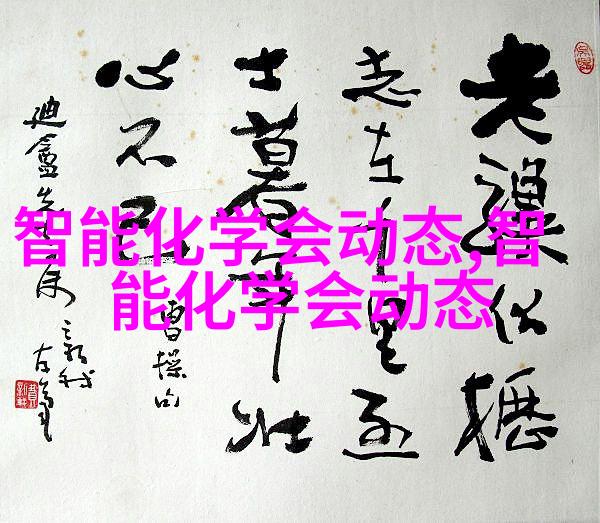 智能化学会动态,智
能化学会动态
老驥伏櫪
志在千里烈
士暮年壮
心不已
曹操句